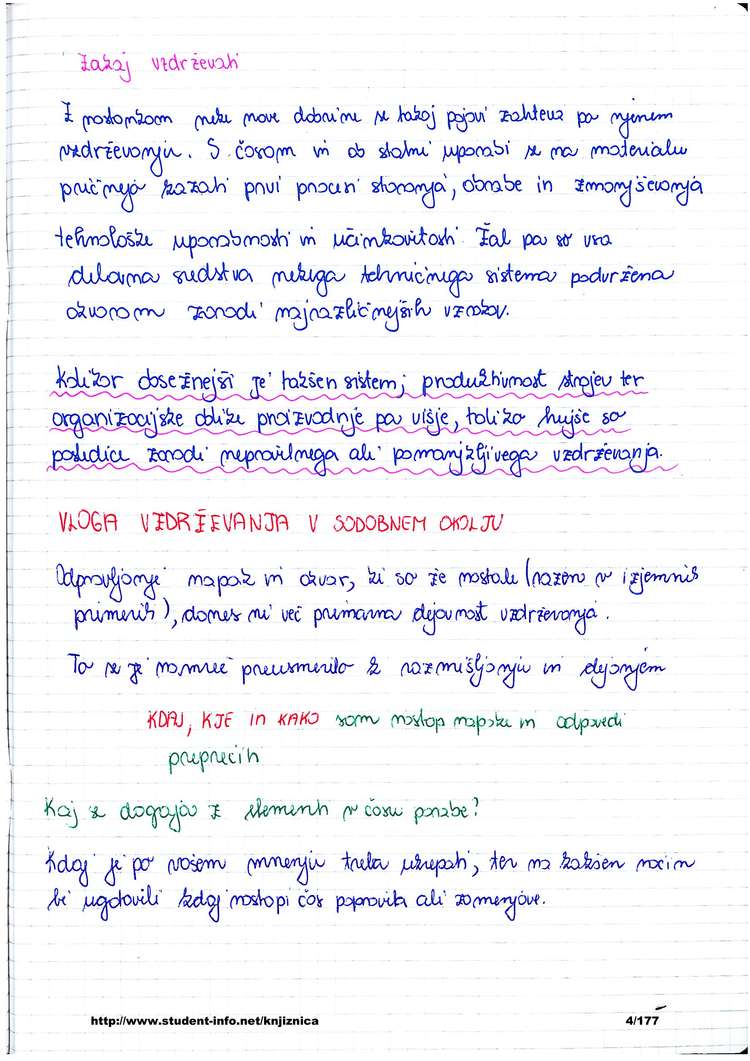 Zakaj vzdrževati
Z nastankom neke nove dobrine se takoj pojavi zahteva po njenem
vzdrževanju. S časom in ob stalni uporabi se na materialu
prične­jo kazati prvi procesi staranja, obrabe in zmanjševanja
tehnološke uporabnosti in učinkovitosti. Žal pa so vsa
delovna sredstva nekega tehničnega sistema podvržena
okvaram zaradi najrazličnejših vzrokov.
Kolikor obsežnejši je takšen sistem, produktivnost strojev ter
organizacijske oblike proizvodnje pa višje, toliko hujše so
posledice zaradi nepravilnega ali pomanjkljivega vzdrževanja.
VLOGA VZDRŽEVANJA V SODOBNEM OKOLJU
Odpravljanje napak in okvar, ki so že nastale (razen v izjemnih
primerih), danes ni več primarna dejavnost vzdrževanja.
Ta se je namreč preusmerila k razmišljanju in dejanjem
KDAJ, KJE in KAKO sam nastop napake in odpovedi
preprečiti
Kaj se dogaja z elementi v času porabe?
Kdaj je po vašem mnenju treba ukrepati, ter na kakšen način
bi ugotovili kdaj nastopi čas popravila ali zamenjave.
http://www.student-info.net/knjiznica
4/177